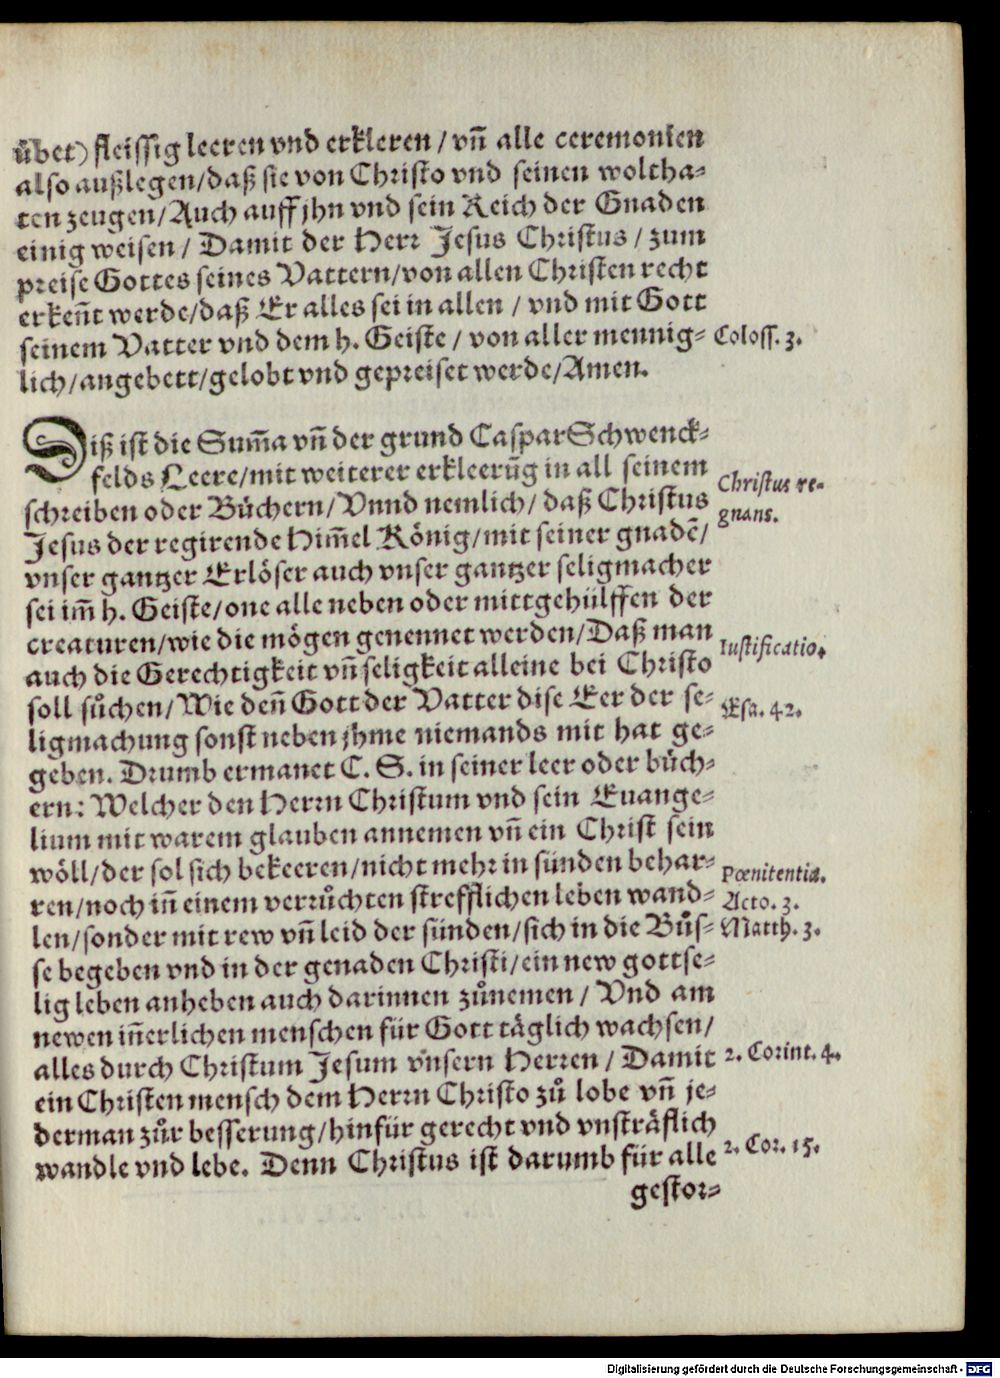 übet) fleissig leeren vnd erkleren / vñ alle ceremonien
also außlegen/daß sie von Christo vnd seinen woltha-
ten zeugen/Auch auff jhn vnd sein Reich der Gnaden
einig weisen / Damit der Herr Jesus Christus / zum
preise Gottes seines Vattern/von allen Christen recht
erkeñt werde/daß Er alles sei in allen / vnd mit Gott
seinem Vatter vnd dem h. Geiste / von aller mennig- Coloss. 3.
lich/angebett/gelobt vnd gepreiset werde/Amen.
Diß ist die Sum̃a vñ der grund Caspar Schwenck-
felds Leere/mit weiterer erkleerũg in all seinem
Christus re-
schreiben oder Büchern/Vnnd nemlich/daß Christus
gnans.
Jesus der regirende Him̃el König/mit seiner gnadẽ/
vnser gantzer Erlöser auch vnser gantzer seligmacher
sei im̃ h. Geiste/one alle neben oder mittgehülffen der
creaturen/wie die mögen genennet werden/Daß man
Iustificatio.
auch die Gerechtigkeit vñ seligkeit alleine bei Christo
soll sůchen/Wie deñ Gott der Vatter dise Eer der se-
Esa. 42.
ligmachung sonst neben jhme niemands mit hat ge-
geben. Drumb ermanet C. S. in seiner leer oder büch-
ern: Welcher den Herrn Christum vnd sein Euange-
lium mit warem glauben annemen vñ ein Christ sein
wöll/der sol sich bekeeren/nicht mehr in sünden behar-
Pœnitentia.
ren/noch iñ einem verrůchten strefflichen leben wand-
Acto. 3.
len/sonder mit rew vñ leid der sünden/sich in die Bůs-
Matth. 3.
se begeben vnd in der genaden Christi/ein new gottse-
lig leben anheben auch darinnen zůnemen / Vnd am
newen iñerlichen menschen für Gott täglich wachsen/
alles durch Christum Jesum vnsern Herren / Damit
2. Corint. 4.
ein Christen mensch dem Herrn Christo zů lobe vñ je-
derman zůr besserung/hinfür gerecht vnd vnsträflich
wandle vnd lebe. Denn Christus ist darumb für alle
2. Cor. 15.
gestor-
Digitalisierung gefördert durch die Deutsche Forschungsgemeinschaft - DFG